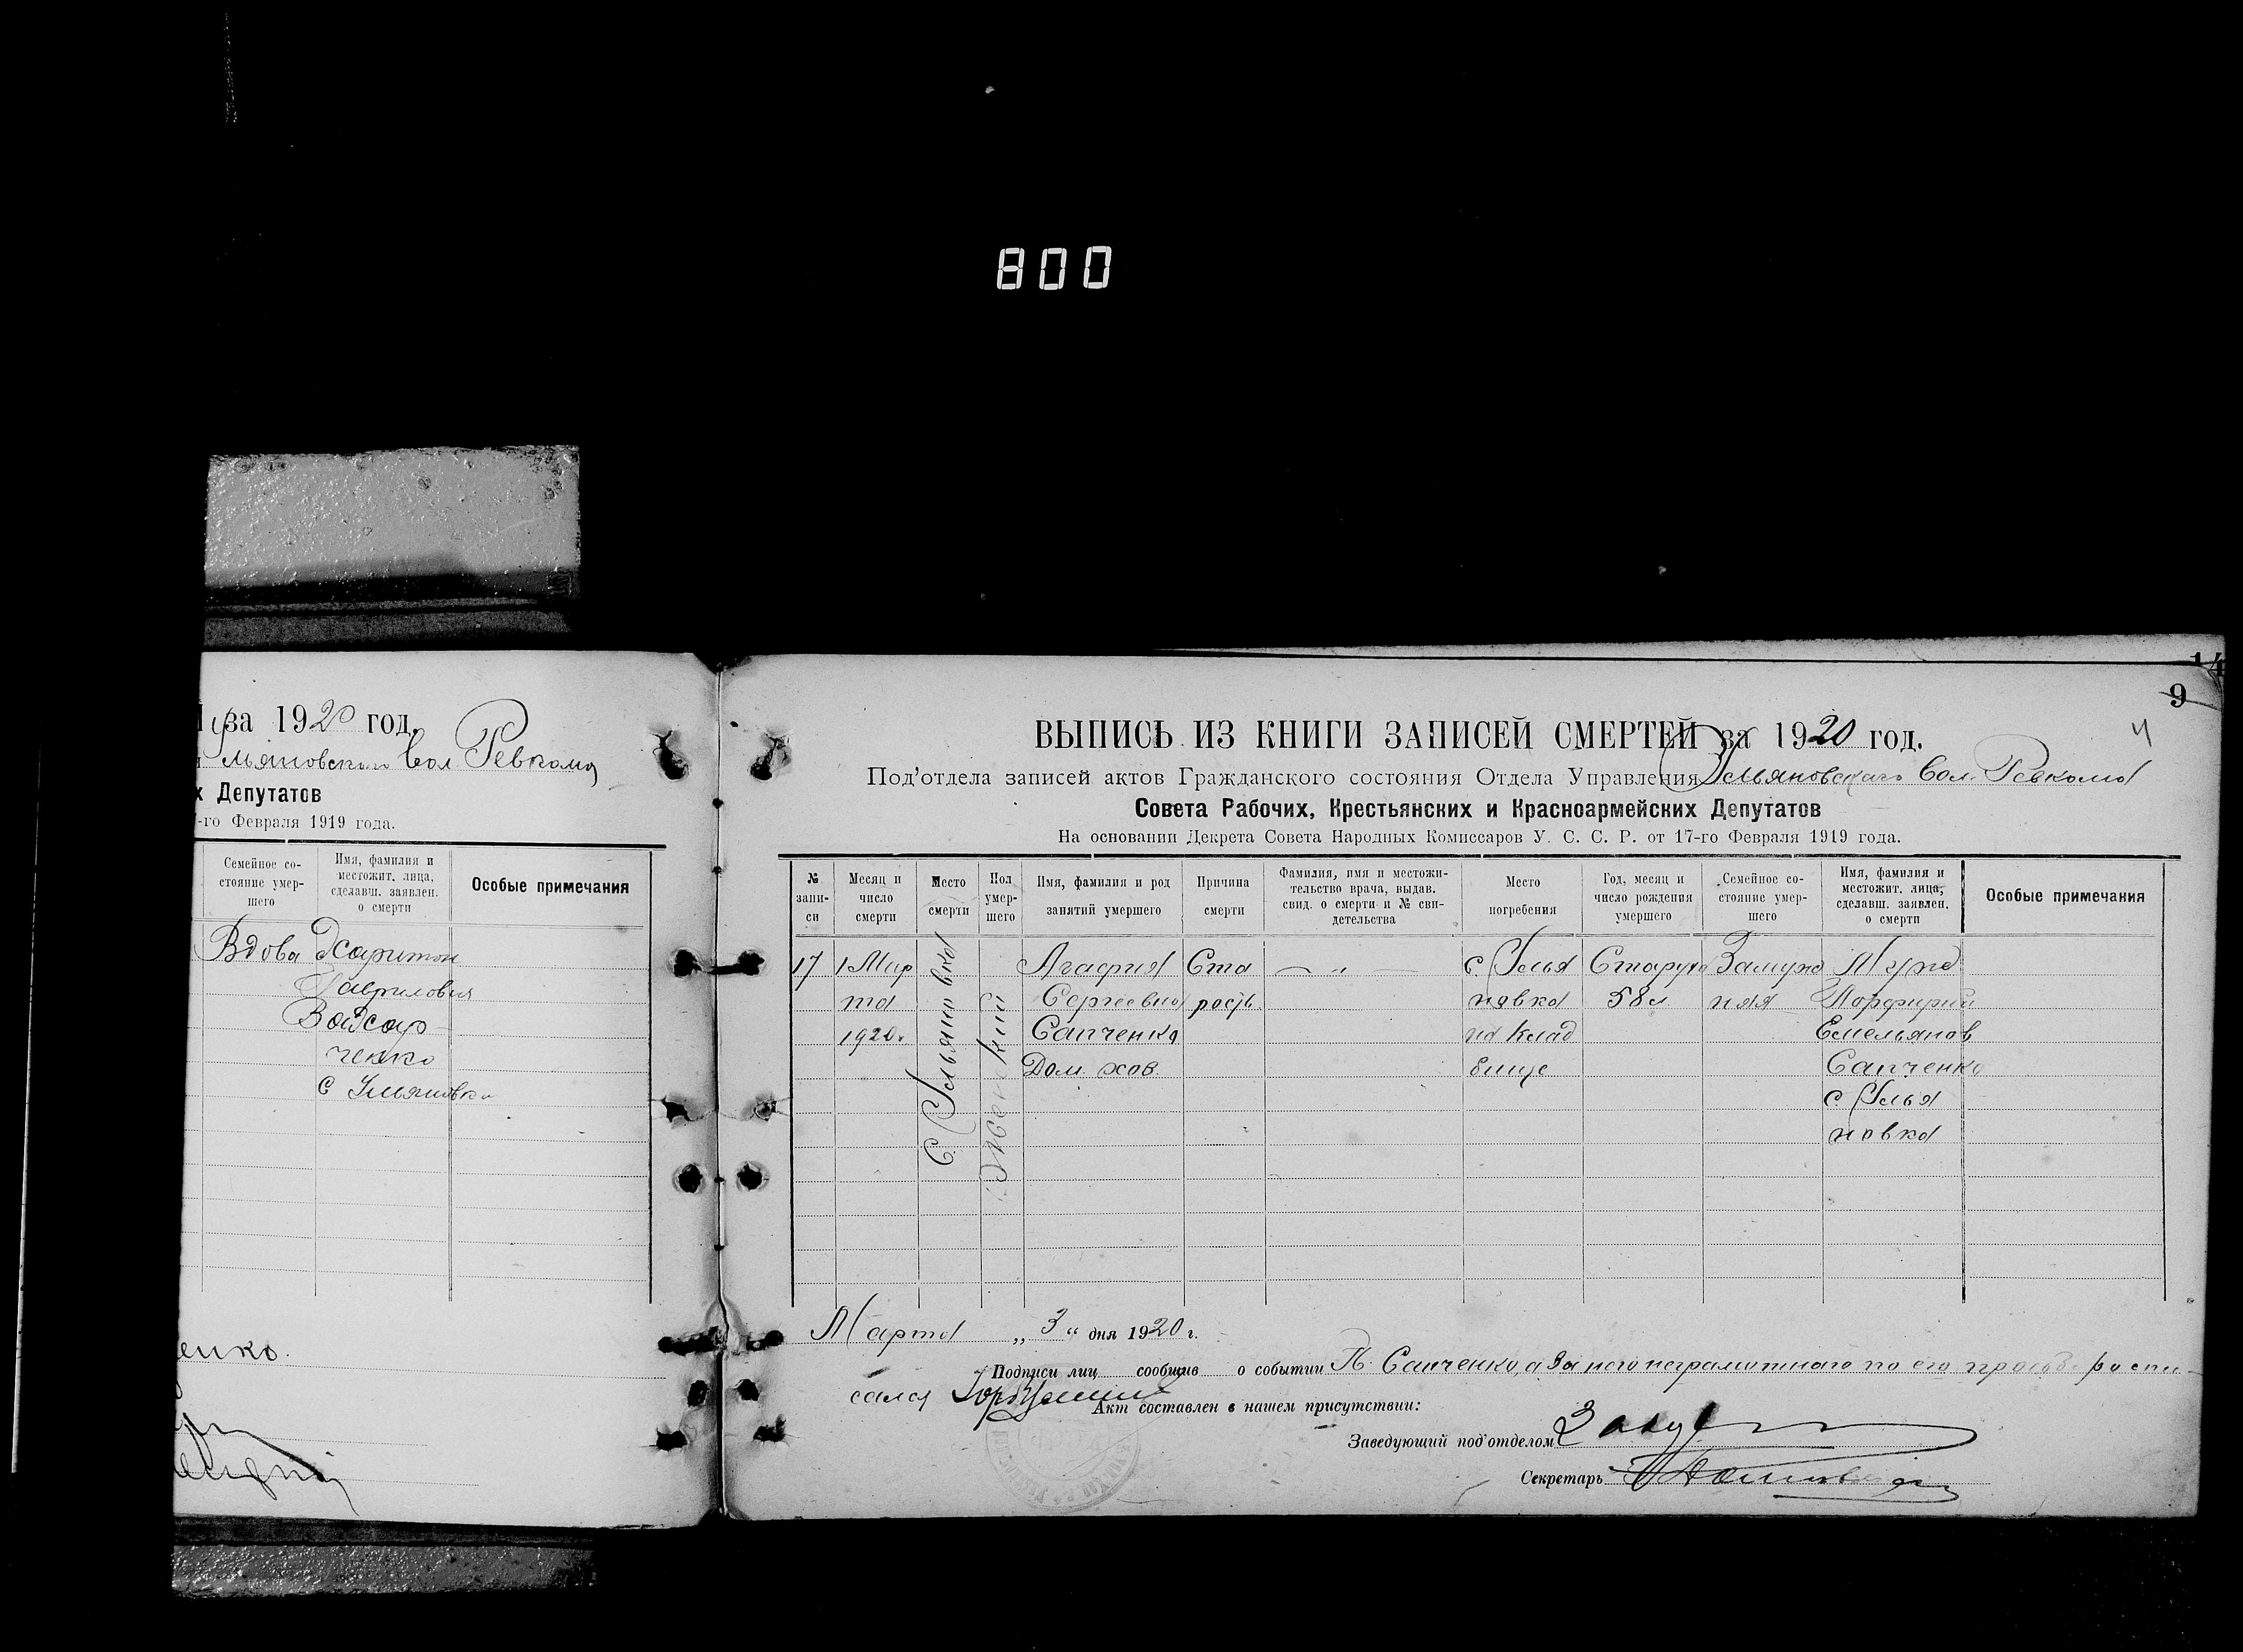 800
за 1920 год.
Ульяновского Вол Ревкома
х Депутатов
-го Февраля 1919 года.
Семейное со-
стояние умер-
шего
Имя, фамилия и
местожит. лица,
сделавш. заявлен.
о смерти
Особые примечания
Вдова Харитон
Гаврилович
ченко
с Ульяновка
енко.
14
9
4
ВЫПИСЬ ИЗ КНИГИ ЗАПИСЕЙ СМЕРТЕЙ за 1920 год.
Под'отдела записей актов Гражданского состояния Отдела Управления Ульяновскаго Вол. Ревкома
Совета Рабочих, Крестьянских и Красноармейских Депутатов
На основании Декрета Совета Народных Комиссаров У. С. С. Р. от 17-го Февраля 1919 года.
№
запи-
си
Месяц и
число
смерти
Место
смерти
Пол
умер-
шего
Имя, фамилия и род
занятий умершего
Причина
смерти
Фамилия, имя и местожи-
тельство врача, выдав.
свид. о смерти и № сви-
детельства
Место
погребения
Год, месяц и
число рождения
умершего
Семейное со-
стояние умер-
шего
Имя, фамилия и
местожит. лица,
сделавш. заявлен.
о смерти
Особые примечания
17
1 Мар
та
1920 г.
С. Ульяновка
Женский
Агафия
Сергеевна
Сапченко
Дом. хоз.
Ста
рость
— „ —
с. Улья
новка
на клад
бище
Старуха
58 л
Замуж
няя
Муж
Порфирий
Емельянов
Сапченко
с. Улья
новка
Марта „ 3 “ дня 1920 г.
Подписи лиц сообщив о событии П. Сапченко, а за него неграмотного по его просьбе роспи-
сался
Акт составлен в нашем присутствии:
Заведующий под'отделом
Секретарь